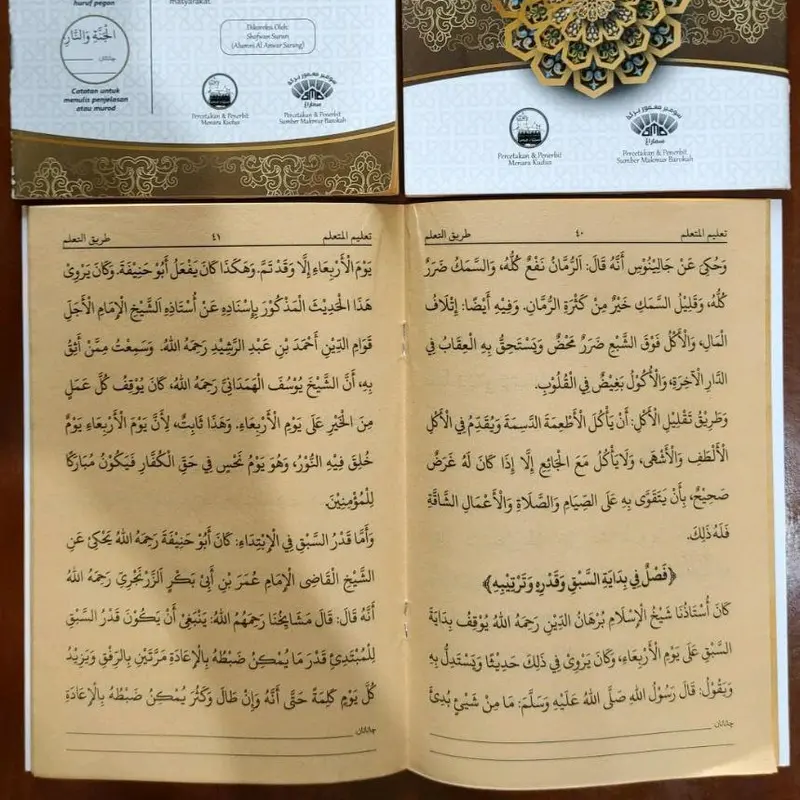 huruf pegon
masyarakat.
الجنة والنار
چاتاتان:
Catatan untuk
menulis penjelasan
atau murod
Dikoreksi Oleh:
Shofwan Surun
(Alumni Al Anwar Sarang)
Percetakan & Penerbit
Menara Kudus
سومبر معمور بركة
سماراڠ
Percetakan & Penerbit
Sumber Makmur Barokah
Percetakan & Penerbit
Menara Kudus
سومبر معمور بركة
سماراڠ
Percetakan & Penerbit
Sumber Makmur Barokah
تعليم المتعلم ٤٠ طريق التعلم
وَحُكِيَ عَنْ جَالِيْنُوْسَ أَنَّهُ قَالَ: اَلرُّمَانُ نَفْعٌ كُلُّهُ، وَالسَّمَكُ ضَرَرٌ
كُلُّهُ، وَقَلِيْلُ السَّمَكِ خَيْرٌ مِنْ كَثْرَةِ الرُّمَانِ. وَفِيْهِ أَيْضًا: إِتْلَافُ
الْمَالِ، وَالْأَكْلُ فَوْقَ الشَّبْعِ ضَرَرٌ مَحْضٌ وَيَسْتَحِقُّ بِهِ الْعِقَابُ فِي
الدَّارِ الْآخِرَةِ، وَالْأَكُوْلُ بَغِيْضٌ فِي الْقُلُوْبِ.
وَطَرِيْقُ تَقْلِيْلِ الْأَكْلِ: أَنْ يَأْكُلَ الْأَطْعِمَةَ الدَّسِمَةَ وَيُقَدِّمُ فِي الْأَكْلِ
الْأَلْطَفَ وَالْأَشْهَى، وَلَا يَأْكُلُ مَعَ الْجَائِعِ إِلَّا إِذَا كَانَ لَهُ غَرَضٌ
صَحِيْحٌ، بِأَنْ يَتَقَوَّى بِهِ عَلَى الصِّيَامِ وَالصَّلَاةِ وَالْأَعْمَالِ الشَّاقَّةِ
فَلَهُ ذٰلِكَ.
﴿فَصْلٌ فِي بِدَايَةِ السَّبْقِ وَقَدْرِهِ وَتَرْتِيْبِهِ﴾
كَانَ أُسْتَاذُنَا شَيْخُ الْإِسْلَامِ بُرْهَانُ الدِّيْنِ رَحِمَهُ اللّٰهُ يُوْقِفُ بِدَايَةَ
السَّبْقِ عَلَى يَوْمِ الْأَرْبِعَاءِ، وَكَانَ يَرْوِيْ فِي ذٰلِكَ حَدِيْثًا وَيَسْتَدِلُّ بِهِ
وَيَقُوْلُ: قَالَ رَسُوْلُ اللّٰهِ صَلَّى اللّٰهُ عَلَيْهِ وَسَلَّمَ: مَا مِنْ شَيْئٍ بُدِئَ
چاتاتان:
تعليم المتعلم ٤١ طريق التعلم
يَوْمَ الْأَرْبِعَاءِ إِلَّا وَقَدْ تَمَّ. وَهٰكَذَا كَانَ يَفْعَلُ أَبُوْ حَنِيْفَةَ. وَكَانَ يَرْوِيْ
هٰذَا الْحَدِيْثَ الْمَذْكُوْرَ بِإِسْنَادِهِ عَنْ أُسْتَاذِهِ اَلشَّيْخِ الْإِمَامِ الْأَجَلِّ
قَوَامِ الدِّيْنِ أَحْمَدَ بْنِ عَبْدِ الرَّشِيْدِ رَحِمَهُ اللّٰهُ. وَسَمِعْتُ مِمَّنْ أَثِقُ
بِهِ، أَنَّ الشَّيْخَ يُوْسُفَ الْهَمَدَانِيَّ رَحِمَهُ اللّٰهُ، كَانَ يُوْقِفُ كُلَّ عَمَلٍ
مِنَ الْخَيْرِ عَلَى يَوْمِ الْأَرْبِعَاءِ. وَهٰذَا ثَابِتٌ، لِأَنَّ يَوْمَ الْأَرْبِعَاءِ يَوْمٌ
خُلِقَ فِيْهِ النُّوْرُ، وَهُوَ يَوْمُ نَحْسٍ فِي حَقِّ الْكُفَّارِ فَيَكُوْنُ مُبَارَكًا
لِلْمُؤْمِنِيْنَ.
وَأَمَّا قَدْرُ السَّبْقِ فِي الْإِبْتِدَاءِ: كَانَ أَبُوْ حَنِيْفَةَ رَحِمَهُ اللّٰهُ يَحْكِيْ عَنِ
الشَّيْخِ الْقَاضِي الْإِمَامِ عُمَرَ بْنِ أَبِيْ بَكْرٍ اَلزَّرَنْجَرِيّ رَحِمَهُ اللّٰهُ
أَنَّهُ قَالَ: قَالَ مَشَايِخُنَا رَحِمَهُمُ اللّٰهُ: يَنْبَغِيْ أَنْ يَكُوْنَ قَدْرُ السَّبْقِ
لِلْمُبْتَدِئِ قَدْرَ مَا يُمْكِنُ ضَبْطُهُ بِالْإِعَادَةِ مَرَّتَيْنِ بِالرِّفْقِ وَيَزِيْدُ
كُلَّ يَوْمٍ كَلِمَةً حَتَّى أَنَّهُ وَإِنْ طَالَ وَكَثُرَ يُمْكِنُ ضَبْطُهُ بِالْإِعَادَةِ
چاتاتان: